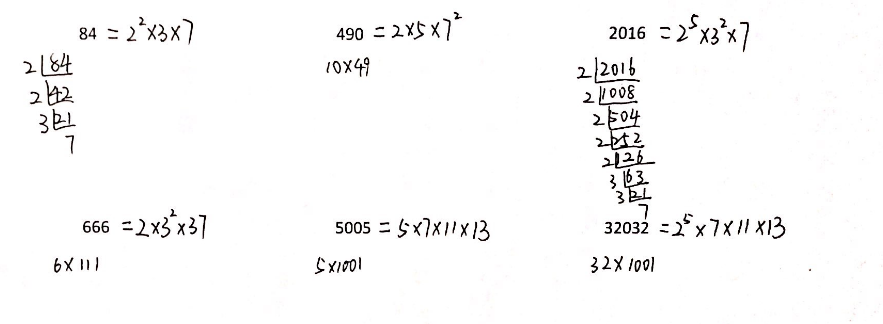 84 = 2²×3×7
2 84
2 42
3 21
7
490 = 2×5×7²
10×49
2016 = 2⁵×3²×7
2 2016
2 1008
2 504
2 252
2 126
3 63
3 21
7
666 = 2×3²×37
6×111
5005 = 5×7×11×13
5×1001
32032 = 2⁵×7×11×13
32×1001